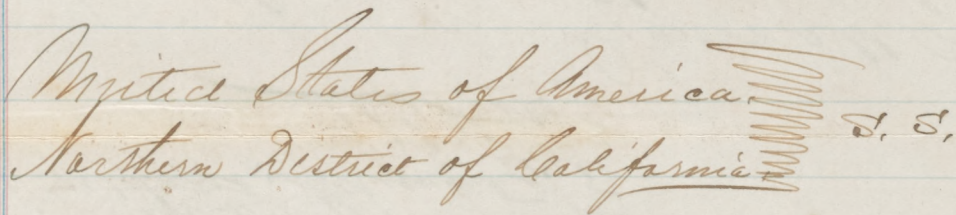 United States of America.
Northern District of California
S. S.